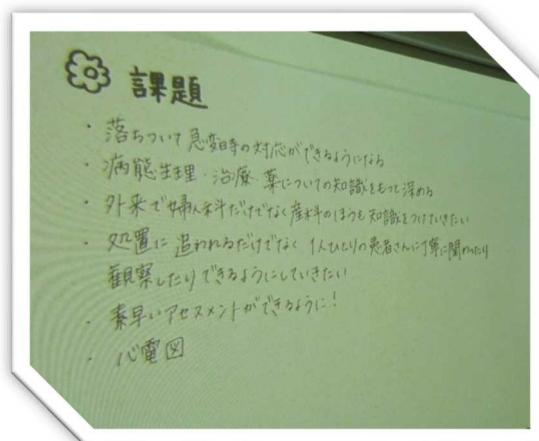 課題
・落ちついて急変時の対応ができるようになる
・病態生理・治療・薬についての知識をもっと深める
・外来で婦人科だけでなく産科のほうも知識をつけていきたい
・処置に追われるだけでなく 1人ひとりの患者さんに丁寧に関わったり
観察したりできるようにしていきたい
・素早いアセスメントができるように!
・心電図